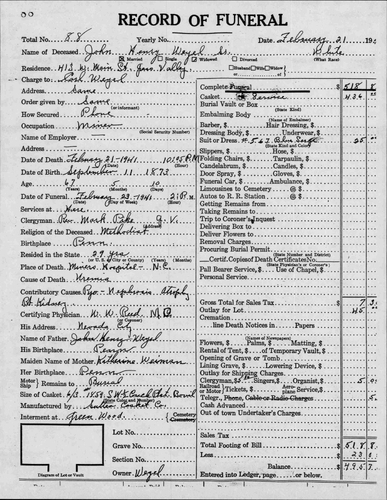 RECORD OF FUNERAL
Total No. 88 Yearly No. Date February 21 19
Name of Deceased John Henry Weyel Sr. White
Married Single Widowed Divorced Husband Wife or Widow (What Race)
Residence 412 W. Main St. Grass Valley
Charge to Weyel
Address Same
Order given by Same
(or informant)
How Secured Phone
Occupation Miner
(Social Security Number)
Name of Employer
Address
Date of Death February 21-1941 10:05 P.M
Date of Birth September 11 1873
Age 67 5 10
Date of Funeral February 23-1941 2 P.M
Services at Here
Clergyman Rev. Mark Pike G.V.
Religion of the Deceased Methodist
Birthplace Penn
Resided in the State 29 yrs
Place of Death Miners Hospital - N.C.
Cause of Death Uremia
Contributory Causes Pyo-Nephrosis
Rt. Kidney
Certifying Physician W. W. Reed M.D.
His Address Nevada City
Name of Father John Henry Weyel
His Birthplace Penn
Maiden Name of Mother Katherine Weiman
Her Birthplace Penn
Motor Ship Remains to Burial
Size of Casket 6/3 1859
Manufactured by Casket Co.
Interment at Green Wood Cemetery
Lot No.
Grave No.
Section No.
Owner Weyel
Diagram of Lot or Vault
Complete Funeral 518 8
Casket & Service 436
Burial Vault or Box
(State Kind)
Embalming Body
(Name of Embalmer)
Barber, $ Hair Dressing, $
Dressing Body, $ Underwear, $
Suit or Dress #562 Blue Serge 25
(State Kind and Color)
Slippers, $ Hose, $
Folding Chairs, $ Tarpaulin, $
Candelabrum, $ Candles, $
Door Spray, $ Gloves, $
Funeral Car, $ Ambulance, $
Limousines to Cemetery @ $
Autos to R. R. Station @ $
Getting Remains from
Taking Remains to
Trip to Coroner's Inquest
Delivering Box to
Deliver Flowers to
Removal Charges
Procuring Burial Permit
(State Number and District)
Certif. Copies of Death Certificates No.
Pall Bearer Service, $ Use of Chapel, $
Personal Service
Gross Total for Sales Tax 7 3
Outlay for Lot 45
Cremation
line Death Notices in Papers
(Names of Newspapers)
Flowers, $ Palms, $ Matting, $
Rental of Tent, $ of Temporary Vault, $
Opening of Grave or Tomb
Lining Grave with Evergreen
Outlay for Shipping Charges
Clergyman, $5 Singers, $ Organist, $ 5
Railroad Tickets, $ Aeroplane Service, $
Cash Advanced
Out of town Undertaker's Charges
Sales Tax
Total Footing of Bill 518 8
Less 23
Balance 495 7
Entered into Ledger, page or below.